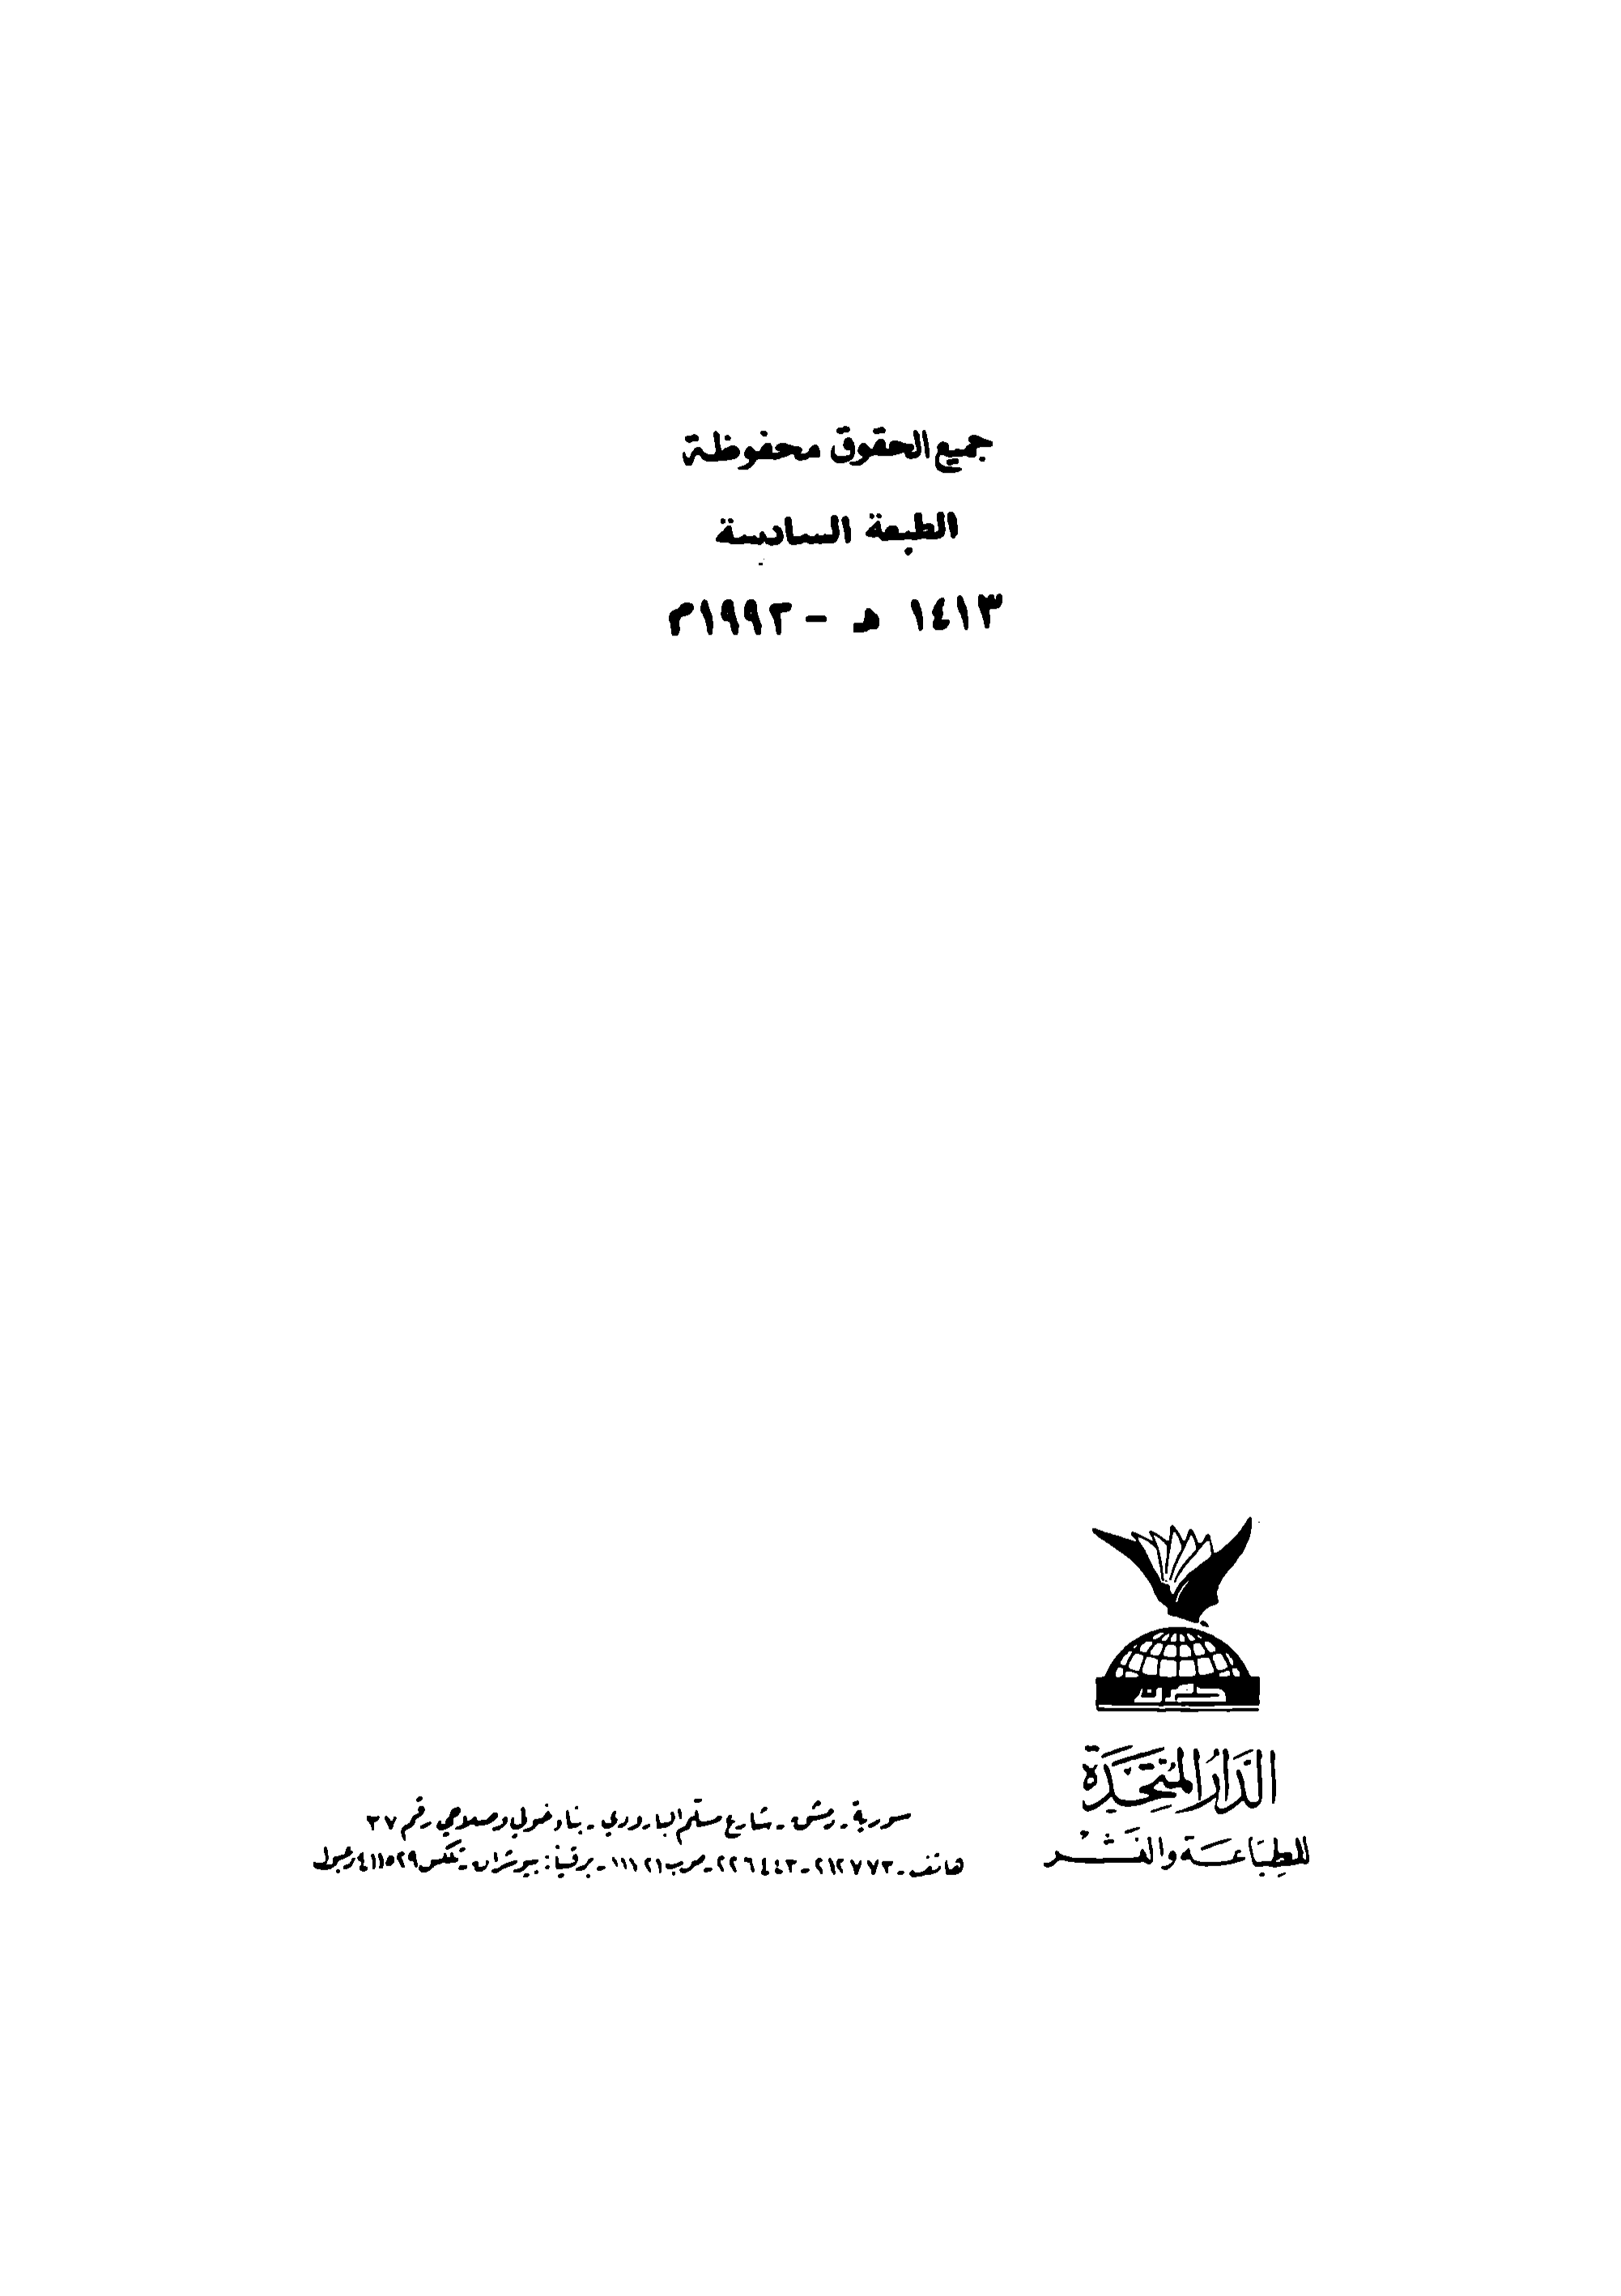 جميع الحقوق محفوظة
الطبعة السادسة
١٤١٣ هـ - ١٩٩٢م
الدَّارُ المُتَّحِدَة
للطِبَاعَة والنَشْر
سورية ـ دمشق ـ شارع مسلم البارودي ـ بناء خولي وصلاحي رقم ٣٧
هاتف ـ ٢١٢٧٧٣ ـ ٢٢٦٤٤٣ ـ ص.ب ١١١٢١ ـ برقياً: بيوشران ـ تلكس ٤١١٥٢٩